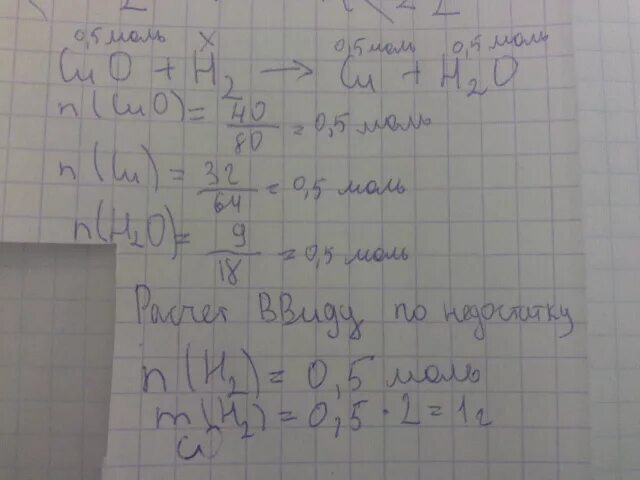 0,5 моль x 0,5 моль 0,5 моль
CuO + H₂ → Cu + H₂O
n(CuO) = 40/80 = 0,5 моль
n(Cu) = 32/64 = 0,5 моль
n(H₂O) = 9/18 = 0,5 моль
Расчет ввиду по недостатку
n(H₂) = 0,5 моль
m(H₂) = 0,5 · 2 = 1г